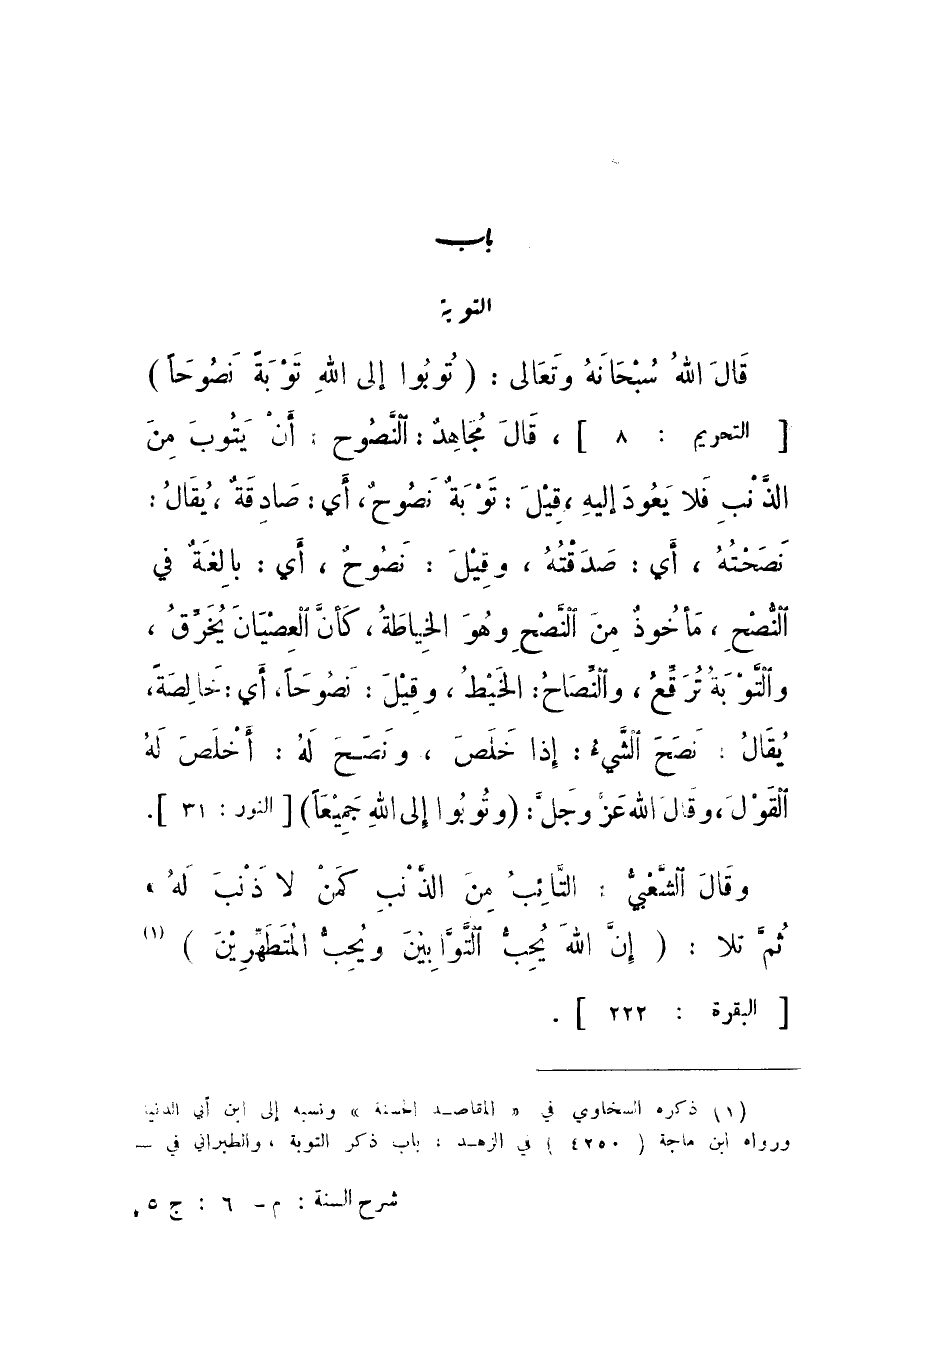 باب
التوبة
قَالَ اللهُ سُبْحَانَهُ وتَعَالى : ( تُوبُوا إلى اللهِ تَوْبَةً نَصُوحَاً )
[ التحريم : ٨ ] ، قَالَ مُجَاهِدٌ : ٱلنَّصُوح : أَنْ يَتُوبَ مِنَ
الذَّنْبِ فَلا يَعُودَ إليهِ ، قِيْلَ : تَوْبَةٌ نَصُوحٌ ، أَي : صَادِقَةٌ ، يُقَالُ :
نَصَحْتُهُ ، أَي : صَدَقْتُهُ ، وقِيْلَ : نَصُوحٌ ، أَي : بالِغَةٌ في
ٱلنُّصْحِ ، مَأخُوذٌ مِنَ ٱلنَّصْحِ وهُوَ الخِياطَةُ ، كَأنَّ ٱلعِصْيَانَ يُخَرِّقُ ،
وٱلتَّوْبَةُ تُرَقِّعُ ، وٱلنِّصَاحُ : الخَيْطُ ، وقِيْلَ : نَصُوحَاً ، أَي : خَالِصَةً ،
يُقَالُ : نَصَحَ ٱلشَّيءُ : إذا خَلَصَ ، ونَصَحَ لَهُ : أَخْلَصَ لَهُ
ٱلقَوْلَ ، وقَالَ اللهُ عَزَّ وجَلَّ : ( وتُوبُوا إلى اللهِ جَمِيْعَاً ) [ النور : ٣١ ] .
وقَالَ ٱلشَّعْبيُّ : التَّائِبُ مِنَ الذَّنْبِ كَمَنْ لا ذَنْبَ لَهُ ،
ثُمَّ تلا : ( إنَّ اللهَ يُحِبُّ ٱلتَّوَّابِيْنَ ويُحِبُّ المُتَطَهِّرِيْنَ ) (١)
[ البقرة : ٢٢٢ ] .
(١) ذكره السخاوي في « المقاصد الحسنة » ونسبه إلى ابن أبي الدنيا
ورواه ابن ماجة ( ٤٢٥٠ ) في الزهد : باب ذكر التوبة ، والطبراني في ــ
شرح السنة : م - ٦ : ج ٥